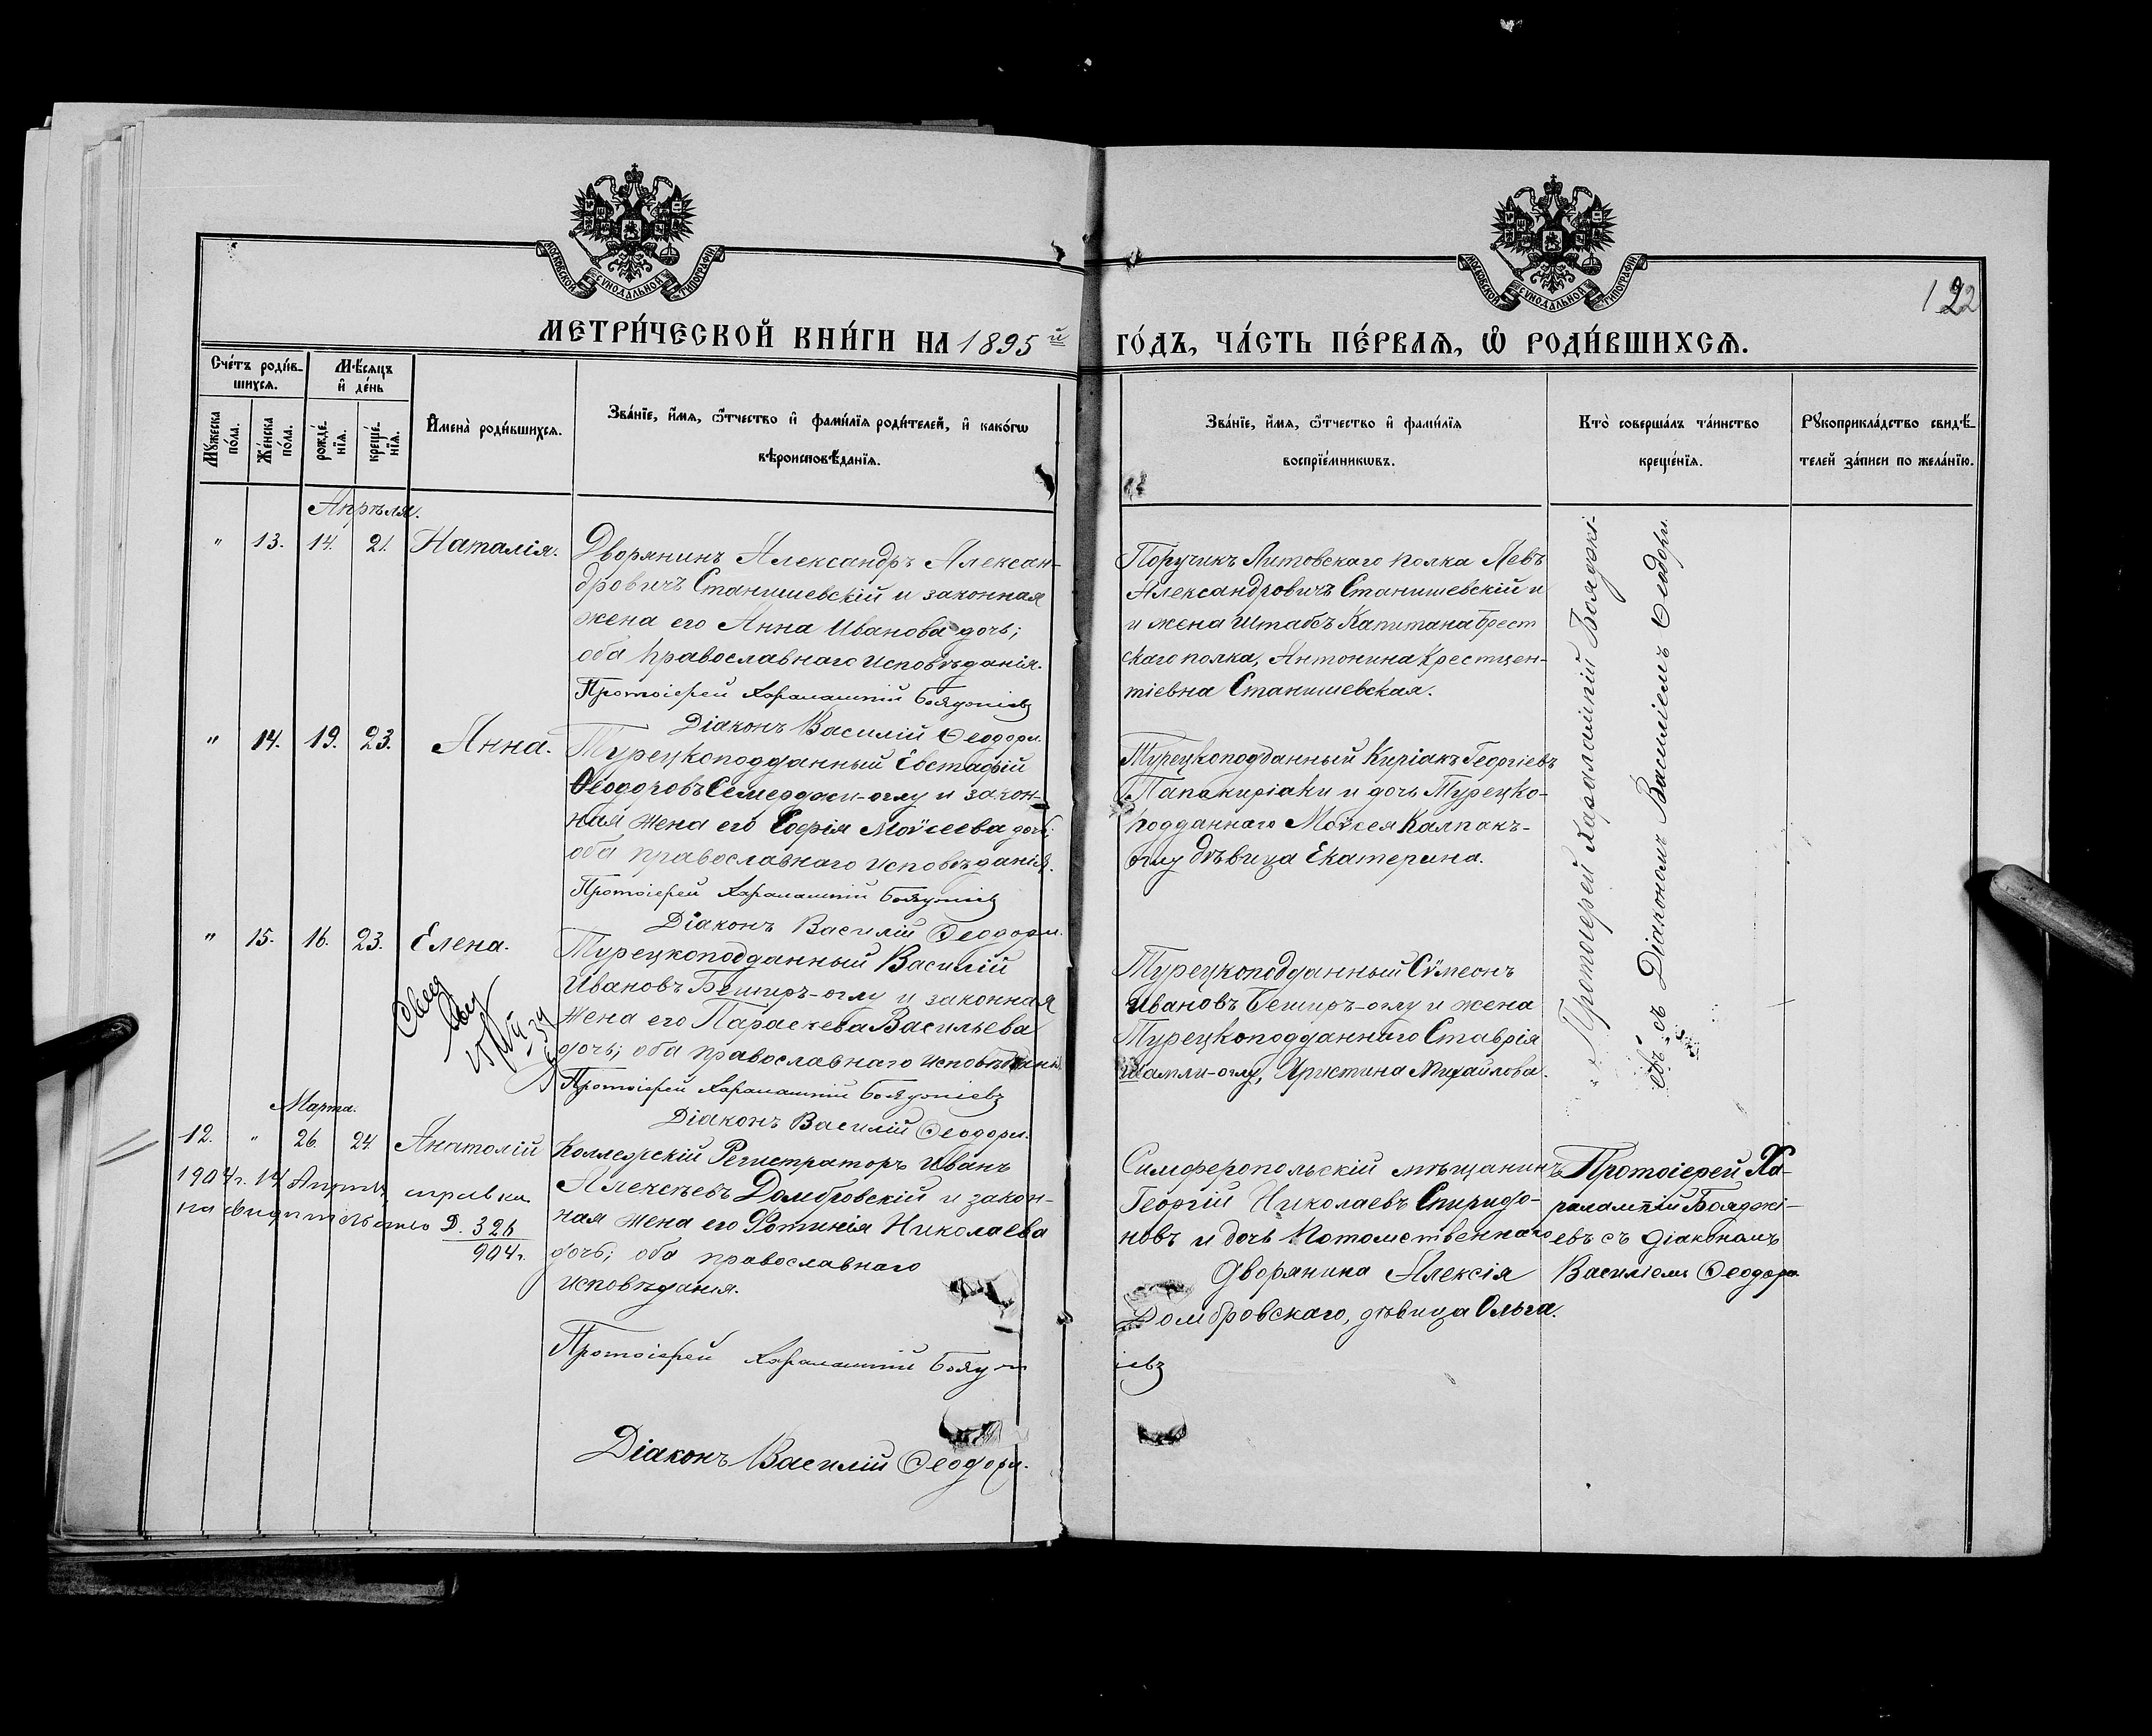 МОСКОВСКОЙ СѴНОДАЛЬНОЙ ТИПОГРАФІИ
МОСКОВСКОЙ СѴНОДАЛЬНОЙ ТИПОГРАФІИ
122
МЕТРИ́ЧЕСКОЙ КНИ́ГИ НА 1895й ГО́ДЪ, ЧА́СТЬ ПЕ́РВАѦ, Ѡ҆ РОДИ́ВШИХСѦ.
Сче́тъ роди́в-
шихсѧ.
Мѣ́сѧцъ
и҆ де́нь
Мꙋ́жеска
по́ла.
Же́нска
по́ла.
рожде́-
нїѧ.
креще́-
нїѧ.
И҆мена̀ роди́вшихсѧ.
Зва́нїе, и҆́мѧ, ѻ҆́тчество и҆ фами́лїѧ роди́телей, и҆ како́гѡ
вѣроисповѣ́данїѧ.
Зва́нїе, и҆́мѧ, ѻ҆́тчество и҆ фами́лїѧ
воспрїе́мникѡвъ.
Кто̀ соверша́лъ та́инство
креще́нїѧ.
Рꙋкоприкла́дство свидѣ́-
телей за́писи по жела́нїю.
Апрѣля.
" 13. 14. 21. Наталія.
Дворянинъ Александръ Алексан-
дровичъ Станишевскій и законная
жена его Анна Иванова дочь;
оба православнаго исповѣданія.
Протоіерей Харалампій Бояджіевъ
Діаконъ Василій Ѳеодори.
Поручикъ Литовскаго полка Левъ
Александровичъ Станишевскій и
и жена Штабсъ Капитана Брест
скаго полка, Антонина Крестцен-
тіевна Станишевская.
" 14. 19. 23. Анна.
Турецкоподданный Евстафій
Ѳеодоровъ Семерджи-оглу и закон-
ная жена его Софія Моѵсеева дочь;
оба православнаго исповѣданія.
Протоіерей Харалампій Бояджіевъ
Діаконъ Василій Ѳеодори.
Турецкоподданный Киріакъ Георгіевъ
Папакиріаки и дочь Турецко-
подданнаго Моѵсея Калпакъ-
оглу дѣвица Екатерина.
" 15. 16. 23. Елена.
Турецкоподданный Василій
Ивановъ Беширъ-оглу и законная
жена его Параскева Васильева
дочь; оба православнаго исповѣдані.
Протоіерей Харалампій Бояджіевъ
Діаконъ Василій Ѳеодори.
Турецкоподданный Сѵмеонъ
Ивановъ Беширъ-оглу и жена
Турецкоподданнаго Ставрія
Шампли-оглу, Христина Михайлова.
Протоіерей Харалампій Бояджі-
евъ съ Діакономъ Василіемъ Ѳеодори.
Марта.
12. " 26. 24. Анатолій
1904 г. 14 Апрѣля справка
на свидѣтельство Д. 326
904 г.
Коллежскій Регистраторъ Иванъ
Алексѣевъ Домбровскій и закон-
ная жена его Фотинія Николаева
дочь; оба православнаго
исповѣданія.
Протоіерей Харалампій Бояджіевъ
Діаконъ Василій Ѳеодори.
Симферопольскій мѣщанинъ
Георгій Николаевъ Спиридо-
новъ и дочь Потомственнаго
дворянина Алексія
Домбровскаго, дѣвица Ольга.
Протоіерей Ха-
ралампій Бояджі-
евъ съ діакономъ
Василіемъ Ѳеодори.